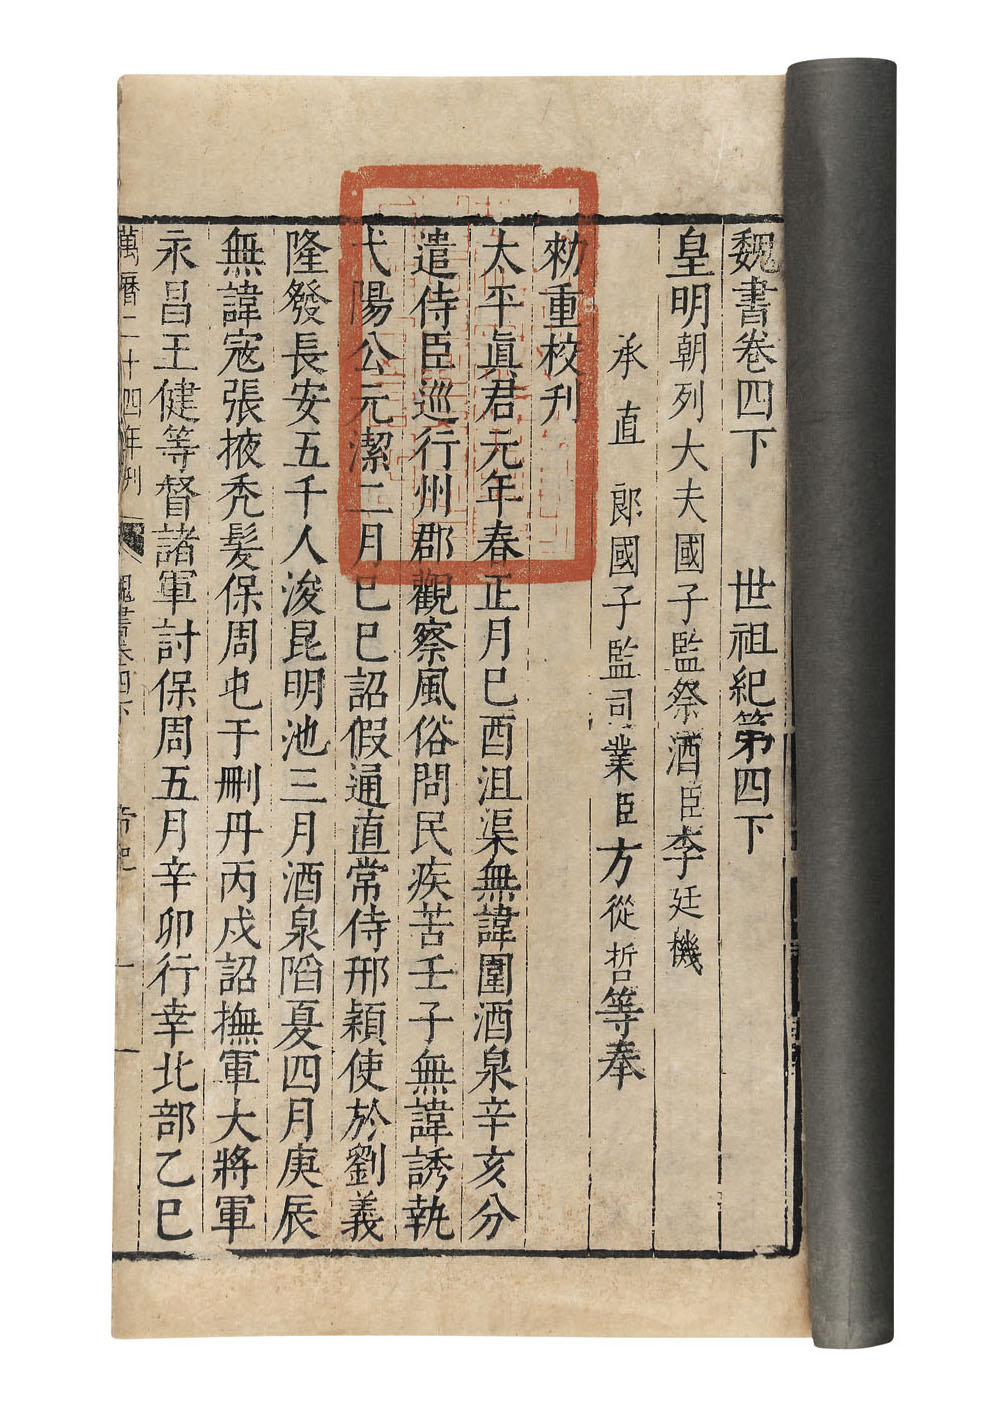 魏書卷四下　世祖紀第四下
皇明朝列大夫國子監祭酒臣李廷機
承直郎國子監司業臣方從哲等奉
勑重校刋
太平眞君元年春正月巳酉沮渠無諱圍酒泉辛亥分
遣侍臣巡行州郡觀察風俗問民疾苦壬子無諱誘執
弋陽公元潔二月巳巳詔假通直常侍邢穎使於劉義
隆發長安五千人浚昆明池三月酒泉陷夏四月庚辰
無諱寇張掖禿髪保周屯于刪丹丙戍詔撫軍大將軍
永昌王健等督諸軍討保周五月辛卯行幸北部乙巳
萬曆二十四年刋　魏書卷四下　帝紀　一